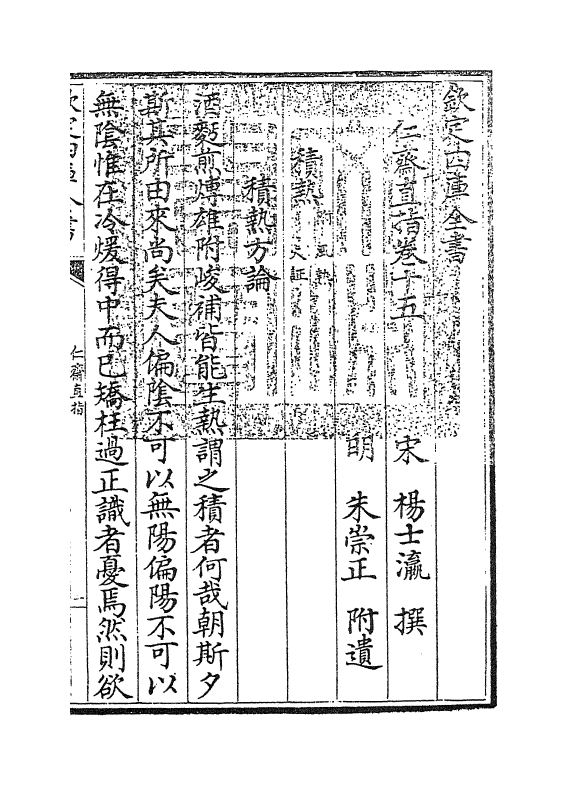 欽定四庫全書
仁齋直指卷十五
宋 楊士瀛 撰
明 朱崇正 附遺
積熱 附風熱火証
積熱方論
酒麫煎煿雄附峻補皆能生熱謂之積者何哉朝斯夕
斯真所由來尚矣夫人偏陰不可以無陽偏陽不可以
無陰惟在冷煖得中而已矯枉過正識者憂焉然則欲
欽定四庫全書
仁齋直指